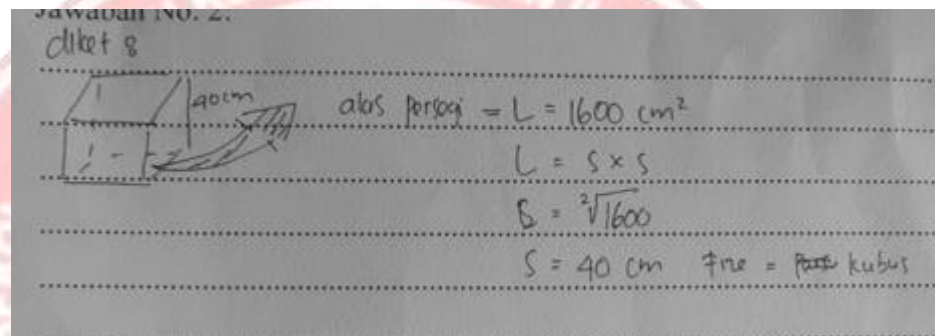 Jawaban No. 2:
diket :
40cm alas persegi = L = 1600 cm²
L = s × s
S = ²√1600
S = 40 cm = kubus